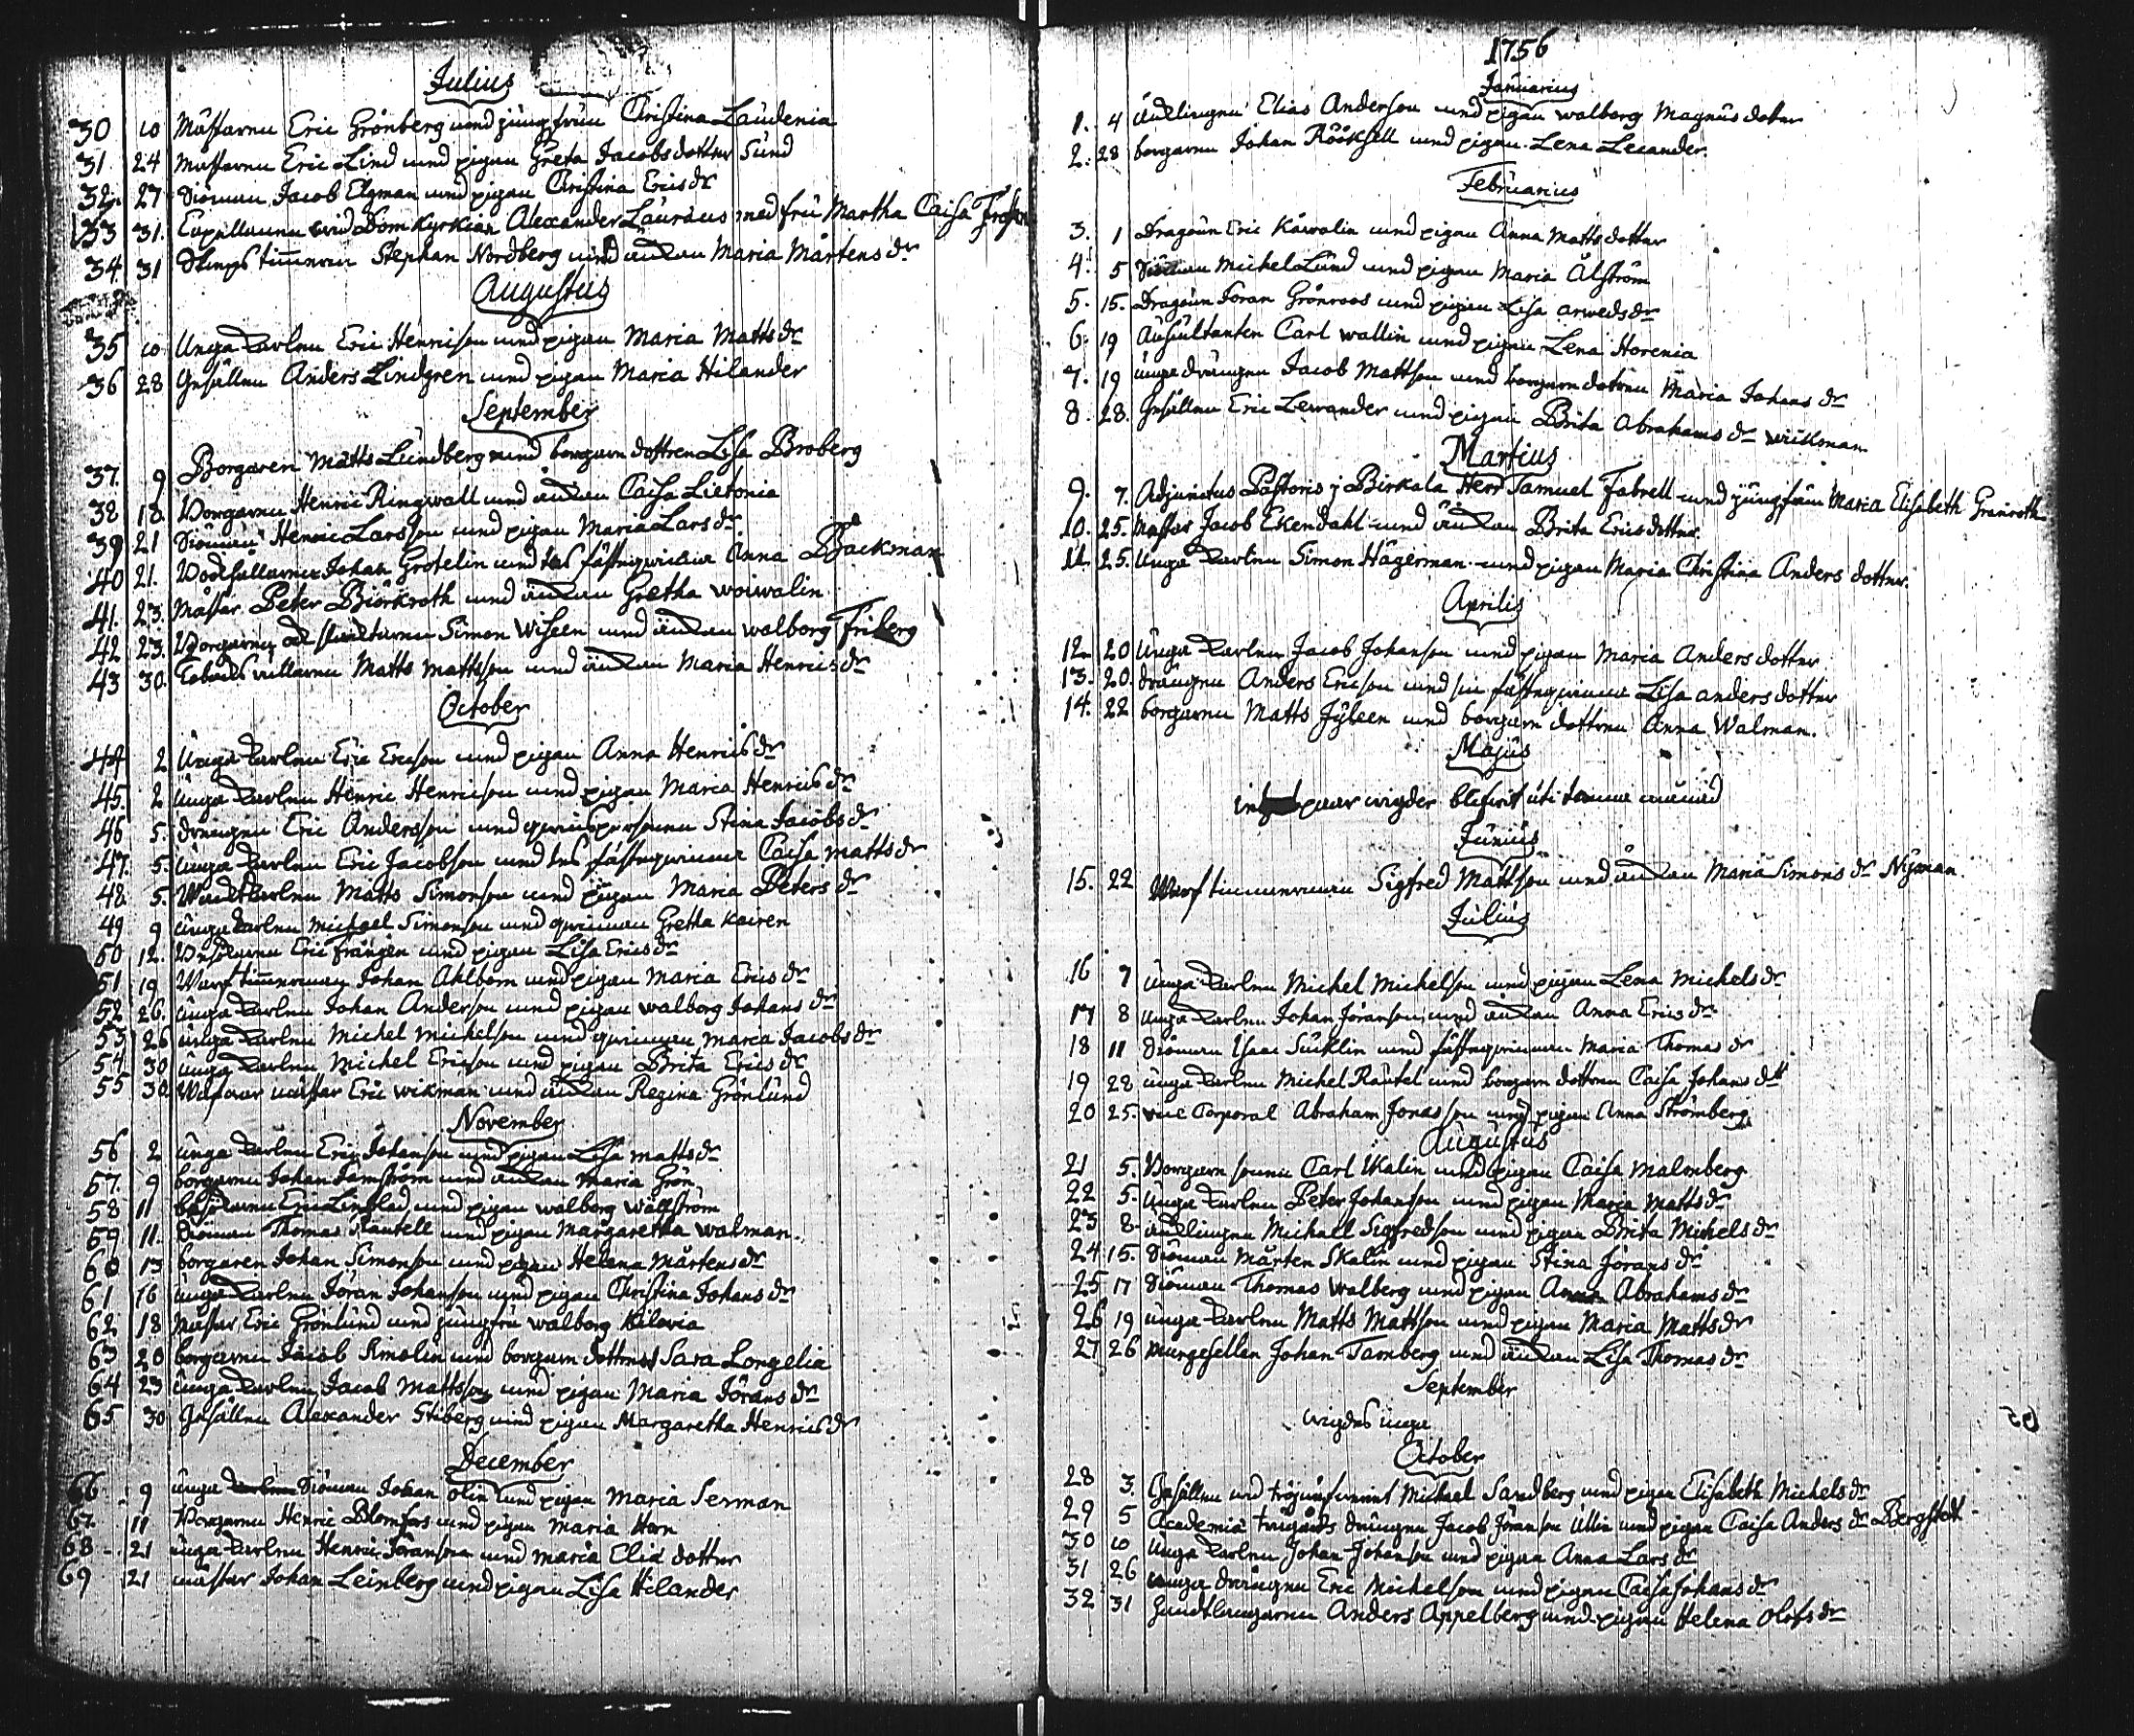 Julius
30 10 Mästaren Eric Grönberg med jungfrun Christina Laudenia
31. 24 Mästaren Eric Lind med pigan Greta Jacobs dotter Sund
32. 27 Siöman Jacob Elgman med pigan Christina Erics dr
33 31. Capellanen wid Domkyrkian Alexander Lauræus med fru Martha Caisa
34. 31 Skeps timmerman Stephan Nordberg med änkan Maria Mårtens dr
Augustus
35 10 Unga karlen Eric Henricson med pigan Maria Matts dr
36 28 Gesällen Anders Lindgren med pigan Maria Hilander
September
37. 9 Borgaren Matts Lundberg med borgare dottren Lisa Broberg
38 18. Borgaren Henric Ringwall med änkan Caisa Lietonia
39 21 Siöman Henric Larsson med pigan Maria Lars dr
40 21. Johan Grotelin med des fästeqwinna Anna Backman
41. 23. Mästar Peter Biörkroth med änkan Gretha woiwalin
42 23. Borgaren Simon Wiseen med änkan walborg Friberg
43 30. Matts Mattsson med änkan Maria Henrics dr
October
44 2 Unga karlen Eric Ericson med pigan Anna Henrics dr
45. 2 Unga karlen Henric Henricson med pigan Maria Henrics dr
46 5. drängen Eric Andersson med qwinspersonen Stina Jacobs dr
47. 5. Unga karlen Eric Jacobson med des fästeqwinna Caisa matts dr
48. 5. Matts Simonson med pigan Maria Peters dr
49 9 Unga karlen michael Simonson med qwinnan Gretha Kairen
50 12. Eric Franzen med pigan Lisa Erics dr
51 19 Warf timmerman Johan Ahlbom med pigan Maria Erics dr
52 26. Unga karlen Johan Anderson med pigan walborg Johans dr
53 26 Unga karlen Michel Michelson med qwinnan Maria Jacobs dr
54 30 Unga karlen Michel Ericson med pigan Brita Erics dr
55 30. mästar Eric wikman med änkan Regina Grönlund
November
56 2 Unga karlen Eric Johanson med pigan Lisa matts dr
57. 9 borgaren Johan Famström med änkan Maria Grön
58 11 Eric Linblad med pigan walborg wallström
59 11. Siöman Thomas Rautell med pigan Margaretha walman.
60 13 borgaren Johan Simonson med pigan Helena Mårtens dr
61 16 Unga karlen Jöran Johanson med pigan Christina Johans dr
62 18 Mästar Eric Grönlund med jungfru walborg Kilovia
63 20 borgaren Jacob Simolin med borgare dottren Sara Longelia
64 23 Unga karlen Jacob Mattsson med pigan Maria Jörans dr
65 30 Gesällen Alexander Stiberg med pigan Margaretha Henrics dr
December
66 9 unga Siöman Johan Olin med pigan Maria Serman
67 11 Borgaren Henric Blomfors med pigan Maria Horn
68 21 unga karlen Henric Joranson med Maria Eliæ dotter
69 21 mästar Johan Leinberg med pigan Lisa Hilander
1756
Januarius
1. 4 änklingen Elias Anderson med pigan walborg Magnus dotter
2. 28 borgaren Johan Rööksell med pigan Lena Lecander.
Februarius
3. 1 Dragoun Eric Kåwalin med pigan Anna Matts dotter
4. 5 Siöman michel Lund med pigan Maria Alström
5. 15. Dragoun Joran Grönroos med pigan Lisa arweds dr
6. 19 Auscultanten Carl wallin med pigan Lena Horenia
7. 19 unga drängen Jacob Mattson med borgare dottren Maria Johans dr
8. 28. Gesällen Eric Lewander med pigan Brita Abrahams dr wickman
Martius
9. 7. Adjunctus Pastoris j Birkala Herr Samuel Fabrell med jungfrun Maria Elisabeth Granroth
10. 25. Mästar Jacob Ekendahl med änkan Brita Erics dotter.
11. 25. Unga karlen Simon Hägerman med pigan Maria Christina Anders dotter.
Aprilis
12 20 Unga karlen Jacob Johanson med pigan Maria Anders dotter
13. 20. drängen Anders Ericson med sin fästeqwinna Lisa anders dotter
14. 22 borgaren Matts Jyleen med borgare dottren Anna Walman.
Majus
paar wigder blefwit uti denna månad
Junius
15. 22 Warf timmerman Sigfred Mattson med änkan Maria Simons dr Nyman.
Julius
16 7 Unga karlen Michel Michelson med pigan Lena Michels dr
17 8 Unga karlen Johan Jöranson med änkan Anna Erics dr
18 11 Siöman Isaac Sucklin med fästeqwinnan Maria Thomas dr
19 22 unga karlen Michel Rautel med borgare dottren Caisa Johans dtr
20 25. vice Corporal Abraham Jonasson med pigan Anna Strömberg
Augustus
21 5. Borgare sonen Carl Ikalin med pigan Caisa Malmberg
22 5. Unga karlen Peter Johanson med pigan Maria Matts dr
23 8. änklingen Michall Sigfredson med pigan Brita Michels dr
24 15. Siöman Mårten Skalin med pigan Stina Jörans dr
25 17 Siöman Thomas Walberg med pigan Anna Abrahams dr
26 19 unga karlen Matts Mattson med pigan Maria Matts dr
27 26 murgesellen Johan Tamberg med änkan Lisa Thomas dr
September
wigdes inga
October
28 3. Gesällen Michael Sandberg med pigan Elisabeth Michels dr
29 5 Academiæ trägårds drängen Jacob Jöranson Ullin med pigan Caisa Anders dr Bergstedt
30 10 Unga karlen Johan Johanson med pigan Anna Lars dr
31 26 unga drängen Eric Michelson med pigan Caisa Johans dr
32 31 Anders Appelberg med pigan Helena Olofs dr